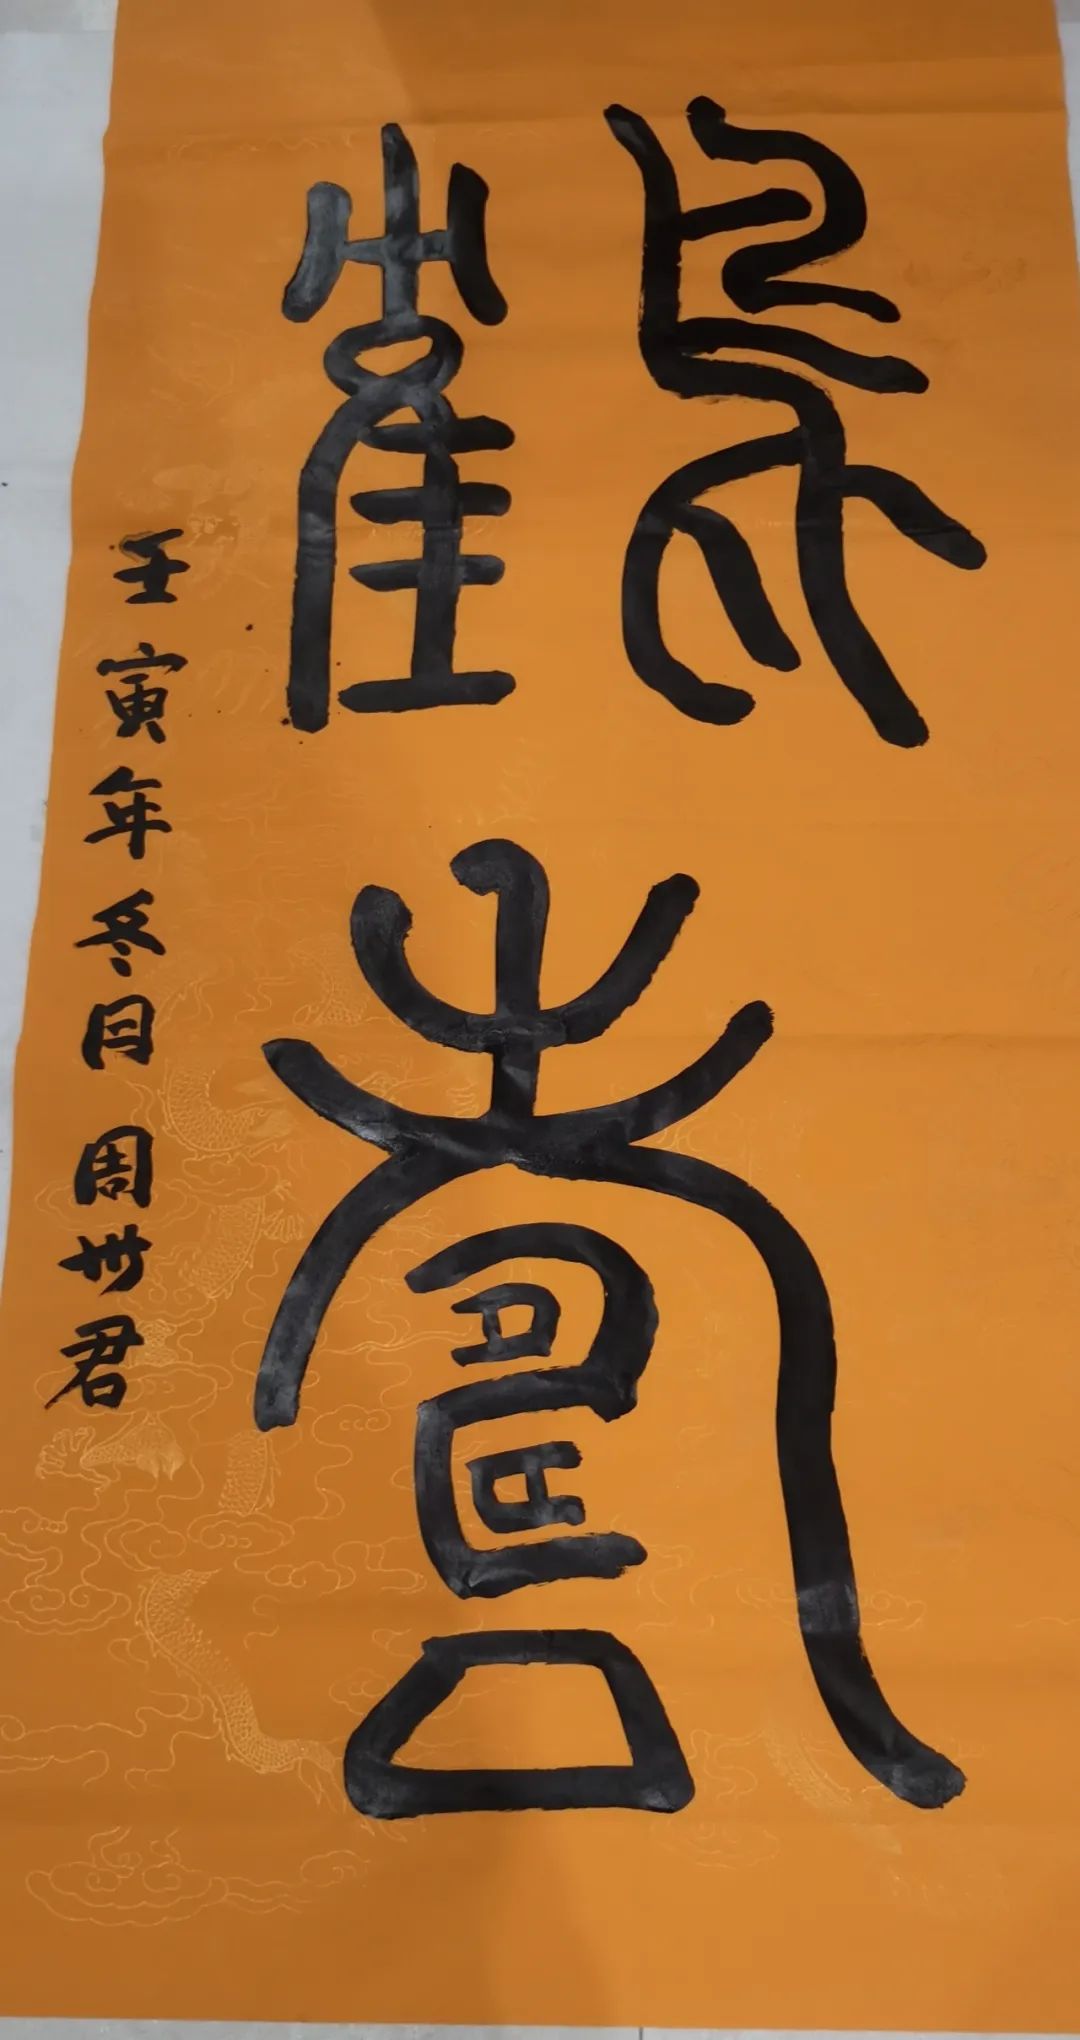 鶴壽
壬寅年冬日 周世君